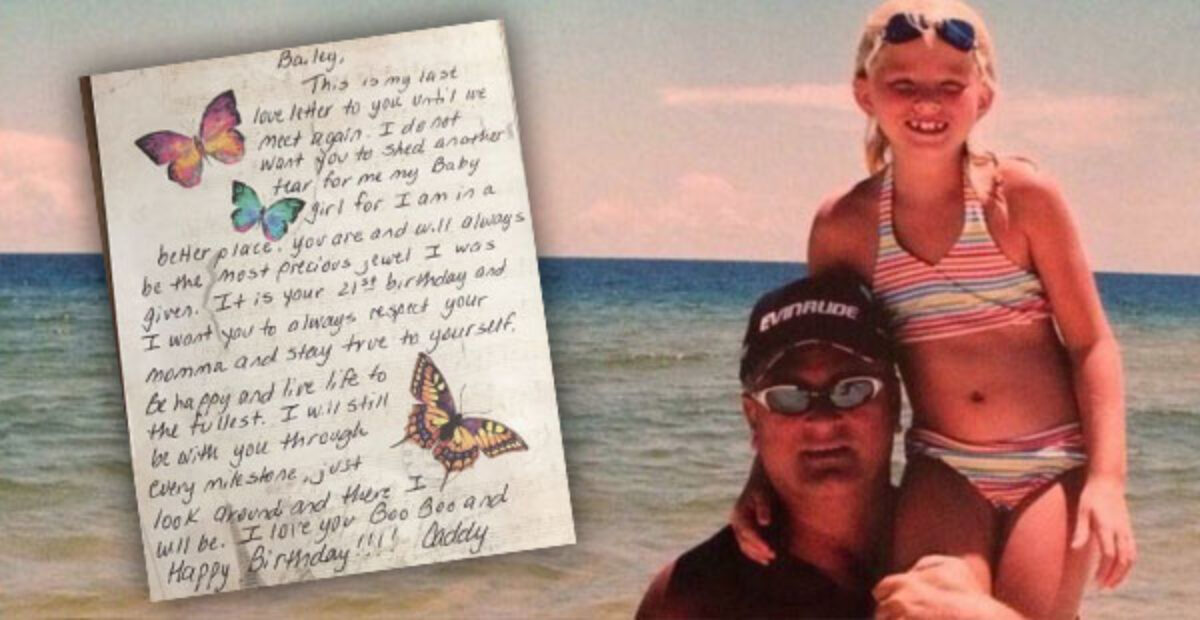 Bailey,
This is my last
love letter to you until we
meet again. I do not
want you to shed another
tear for me my Baby
girl for I am in a
better place. you are and will always
be the most precious jewel I was
given. It is your 21st birthday and
I want you to always respect your
momma and stay true to yourself.
Be happy and live life to
the fullest. I will still
be with you through
every milestone, just
look around and there I
will be. I love you Boo Boo and
Happy Birthday!!!! Daddy
EVINRUDE